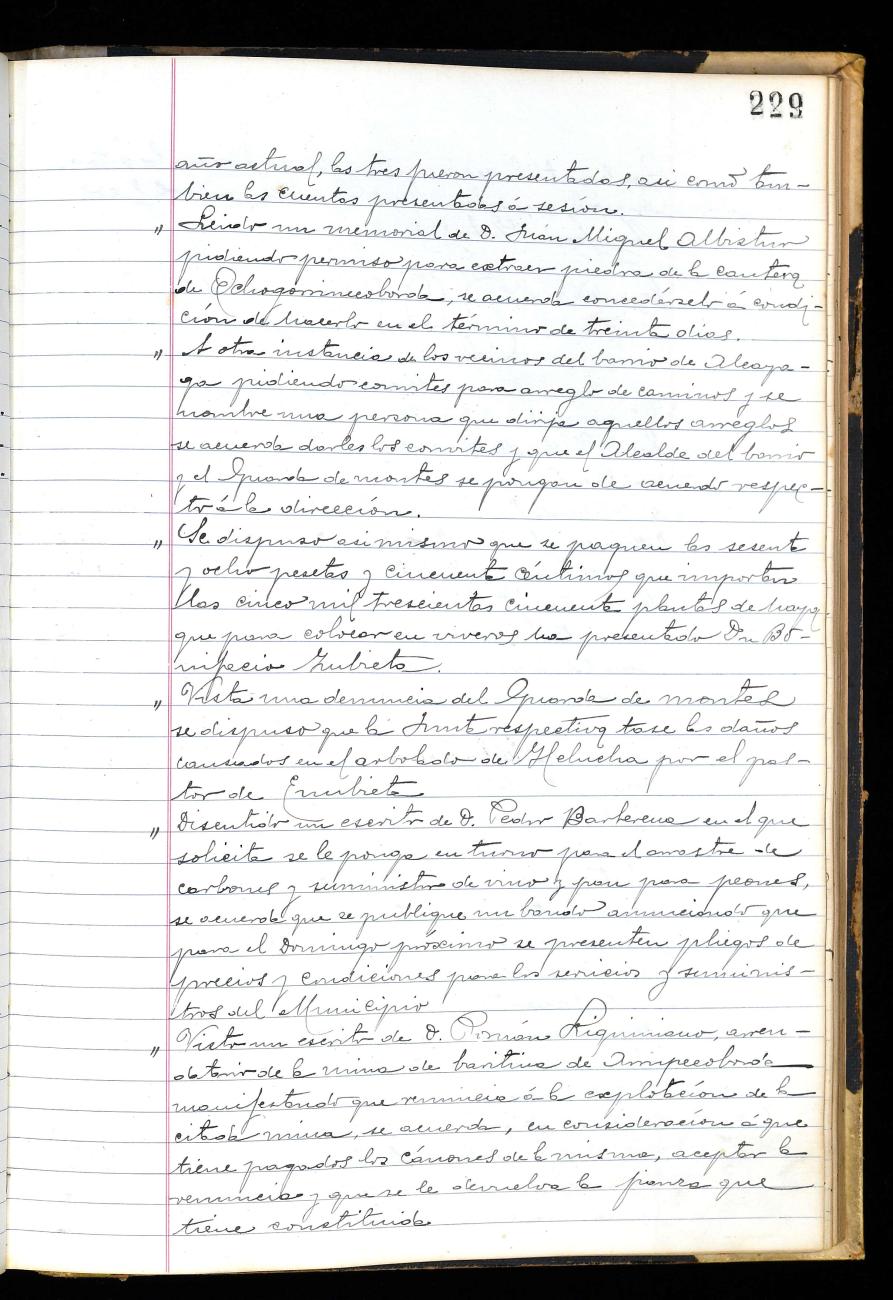 229
año actual, las tres fueron presentadas, asi como tam-
bien las cuentas presentadas á sesión.
" Leido un memorial de D. Juan Miguel Albistur
pidiendo permiso para extraer piedra de la cantera
de Ochogorrinecoborda, se acuerda concedérselo á condi-
ción de hacerlo en el término de treinta dias.
" A otra instancia de los vecinos del barrio de Alcaya-
ga pidiendo convites para arreglo de caminos y se
nombre una persona que dirija aquellos arreglos
se acuerda darles los convites y que el Alcalde del barrio
y el Guarda de montes se pongan de acuerdo respec-
to á la dirección.
" Se dispuso asimismo que se paguen las sesenta
y ocho pesetas y cincuenta céntimos que importan
las cinco mil trescientas cincuenta plantas de haya
que para colocar en viveros ha presentado Dn Bo-
nifacio Zubieta.
" Vista una denuncia del Guarda de montes
se dispuso que la Junta respectiva tase los daños
causados en el arbolado de Helucha por el pas-
tor de Enubieta
" Discutido un escrito de D. Pedro Barberena en el que
solicita se le ponga en turno para el arrastre de
carbones y suministro de vino y pan para peones,
se acuerda que se publique un bando anunciando que
para el Domingo próximo se presenten pliegos de
precios y condiciones para los servicios y suminis-
tros del Municipio
" Visto un escrito de D. Román Liquiniano, arren-
datario de la mina de baritina de
manifestando que renuncia á la explotación de la
citada mina, se acuerda, en consideración á que
tiene pagados los cánones de la misma, aceptar la
renuncia y que se le devuelva la fianza que
tiene constituida